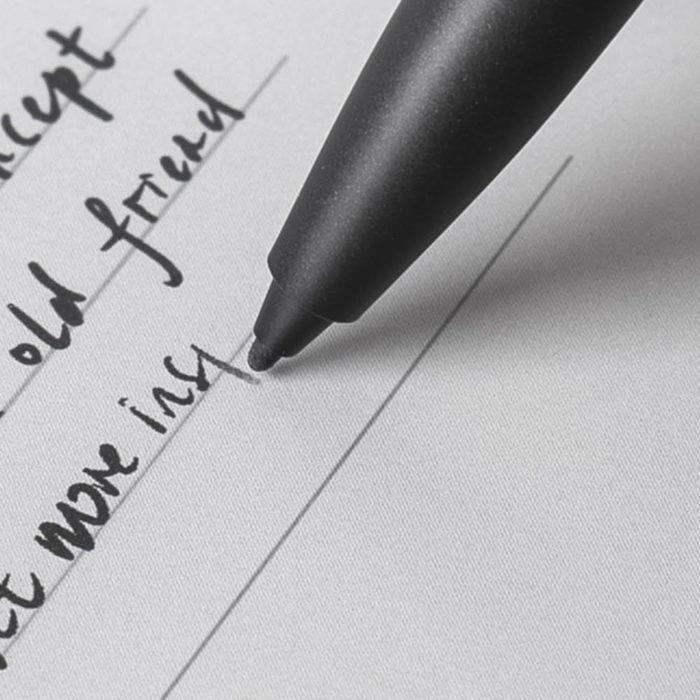 ncept
old friend
more insp